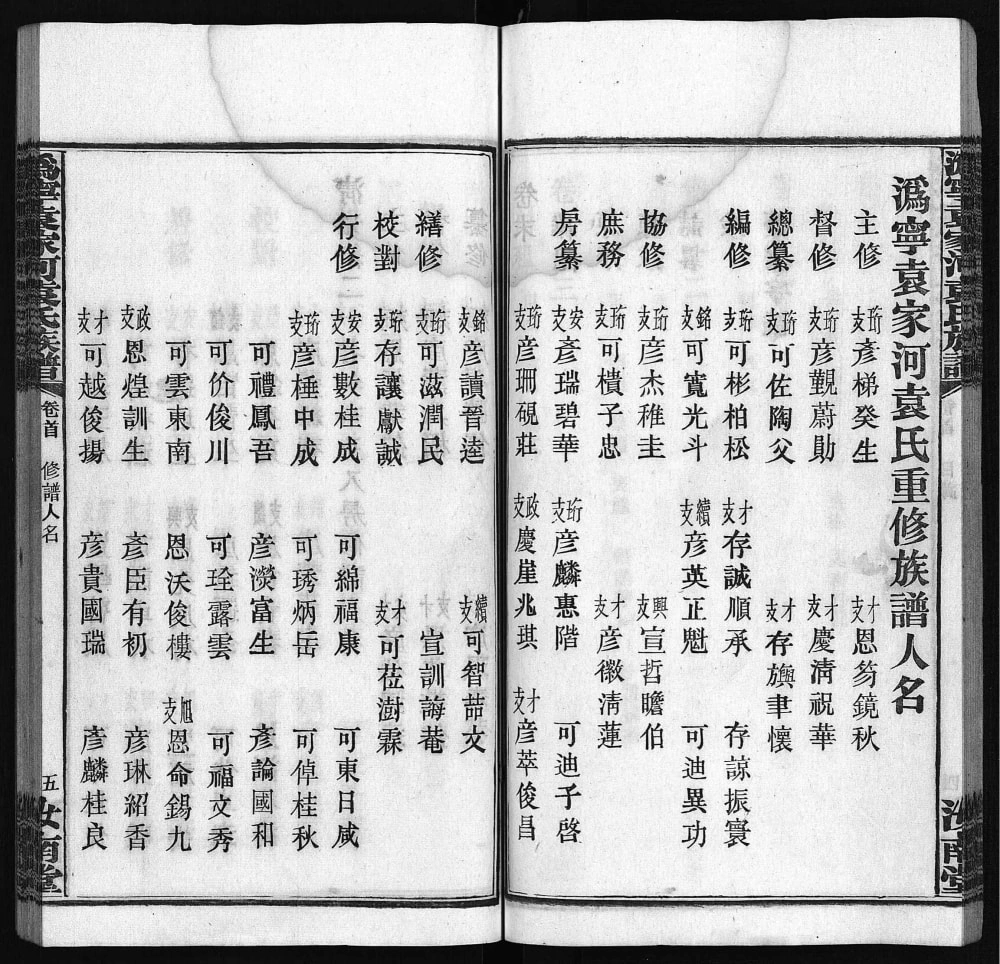 潙寧袁家河袁氏重修族譜人名
主修 珩支彥梯癸生 才支恩笏鏡秋
督修 珩支彥觀蔚勛 才支慶淸祝華
總纂 珩支可佐陶父 才支存旟聿懷
編修 珩支可彬柏松 才支存誠順承 存諒振寰
銘支可寬光斗 續支彥英正魁 可迪異功
協修 珩支彥杰稚圭 興支宣哲瞻伯
庶務 珩支可樻子忠 才支彥徽淸蓮
房纂 安支彥瑞碧華 珩支彥麟惠階 可迪子啓
珩支彥珊硯莊 政支慶崖兆琪 才支彥萃俊昌
銘支彥讀晉逵 續支可智喆文
繕修 珩支可滋潤民 才支宣訓誨菴
校對 珩支存讓獻誠 才支可莅澍霖
行修 安支彥數桂成 可綿福康 可東日咸
珩支彥棰中成 可琇炳岳 可倬桂秋
可禮鳳吾 彥濙富生 彥論國和
可价俊川 可琻露雲 可福文秀
可雲東南 恩沃俊樓 旭支恩命錫九
政支恩煌訓生 彥臣有初 彥琳紹香
才支可越俊揚 彥貴國瑞 彥麟桂良
潙寧袁家河袁氏族譜 卷首 修譜人名 五 汝南堂